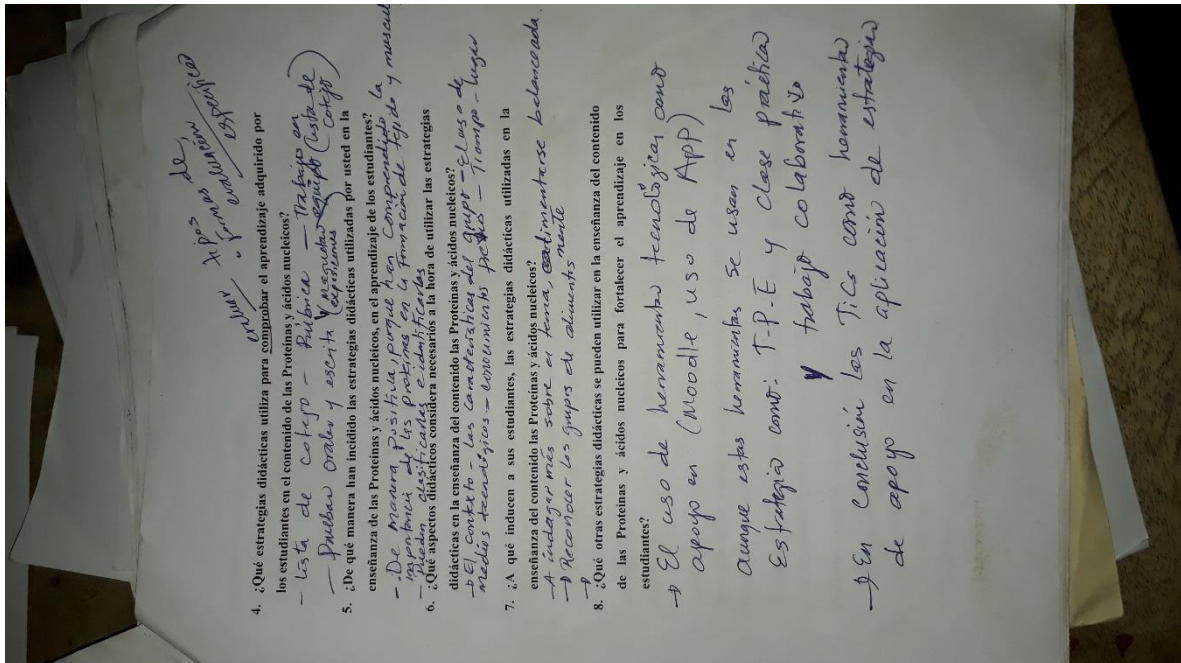 tipos de,
enviar • formas de
evaluación
específica
4. ¿Qué estrategias didácticas utiliza para comprobar el aprendizaje adquirido por
los estudiantes en el contenido de las Proteínas y ácidos nucleicos?
- Lista de cotejo - Rúbrica - Trabajos en
- Pruebas orales y escrita equipo (lista de
exposiciones cotejo)
5. ¿De qué manera han incidido las estrategias didácticas utilizadas por usted en la
enseñanza de las Proteínas y ácidos nucleicos, en el aprendizaje de los estudiantes?
- De manera positiva, porque han comprendido la
importancia de las proteínas en la formación de tejido y muscul
- Pueden clasificarlas e identificarlas
6. ¿Qué aspectos didácticos considera necesarios a la hora de utilizar las estrategias
didácticas en la enseñanza del contenido las Proteínas y ácidos nucleicos?
→ El contexto - las características del grupo - El uso de
medios tecnológicos - conocimiento previos - Tiempo - lugar
7. ¿A qué inducen a sus estudiantes, las estrategias didácticas utilizadas en la
enseñanza del contenido las Proteínas y ácidos nucleicos?
- A indagar más sobre el tema, alimentarse balanceada.
→ Reconocer los grupos de alimentos mente
→
8. ¿Qué otras estrategias didácticas se pueden utilizar en la enseñanza del contenido
de las Proteínas y ácidos nucleicos para fortalecer el aprendizaje en los
estudiantes?
→ El uso de herramienta tecnológicas como
apoyo en (Moodle, uso de App)
aunque estas herramientas se usan en las
Estrategia como: T-P-E y clase práctica
y trabajo colaborativo
→ En conclusión las Tics como herramienta
de apoyo en la aplicación de estrategia